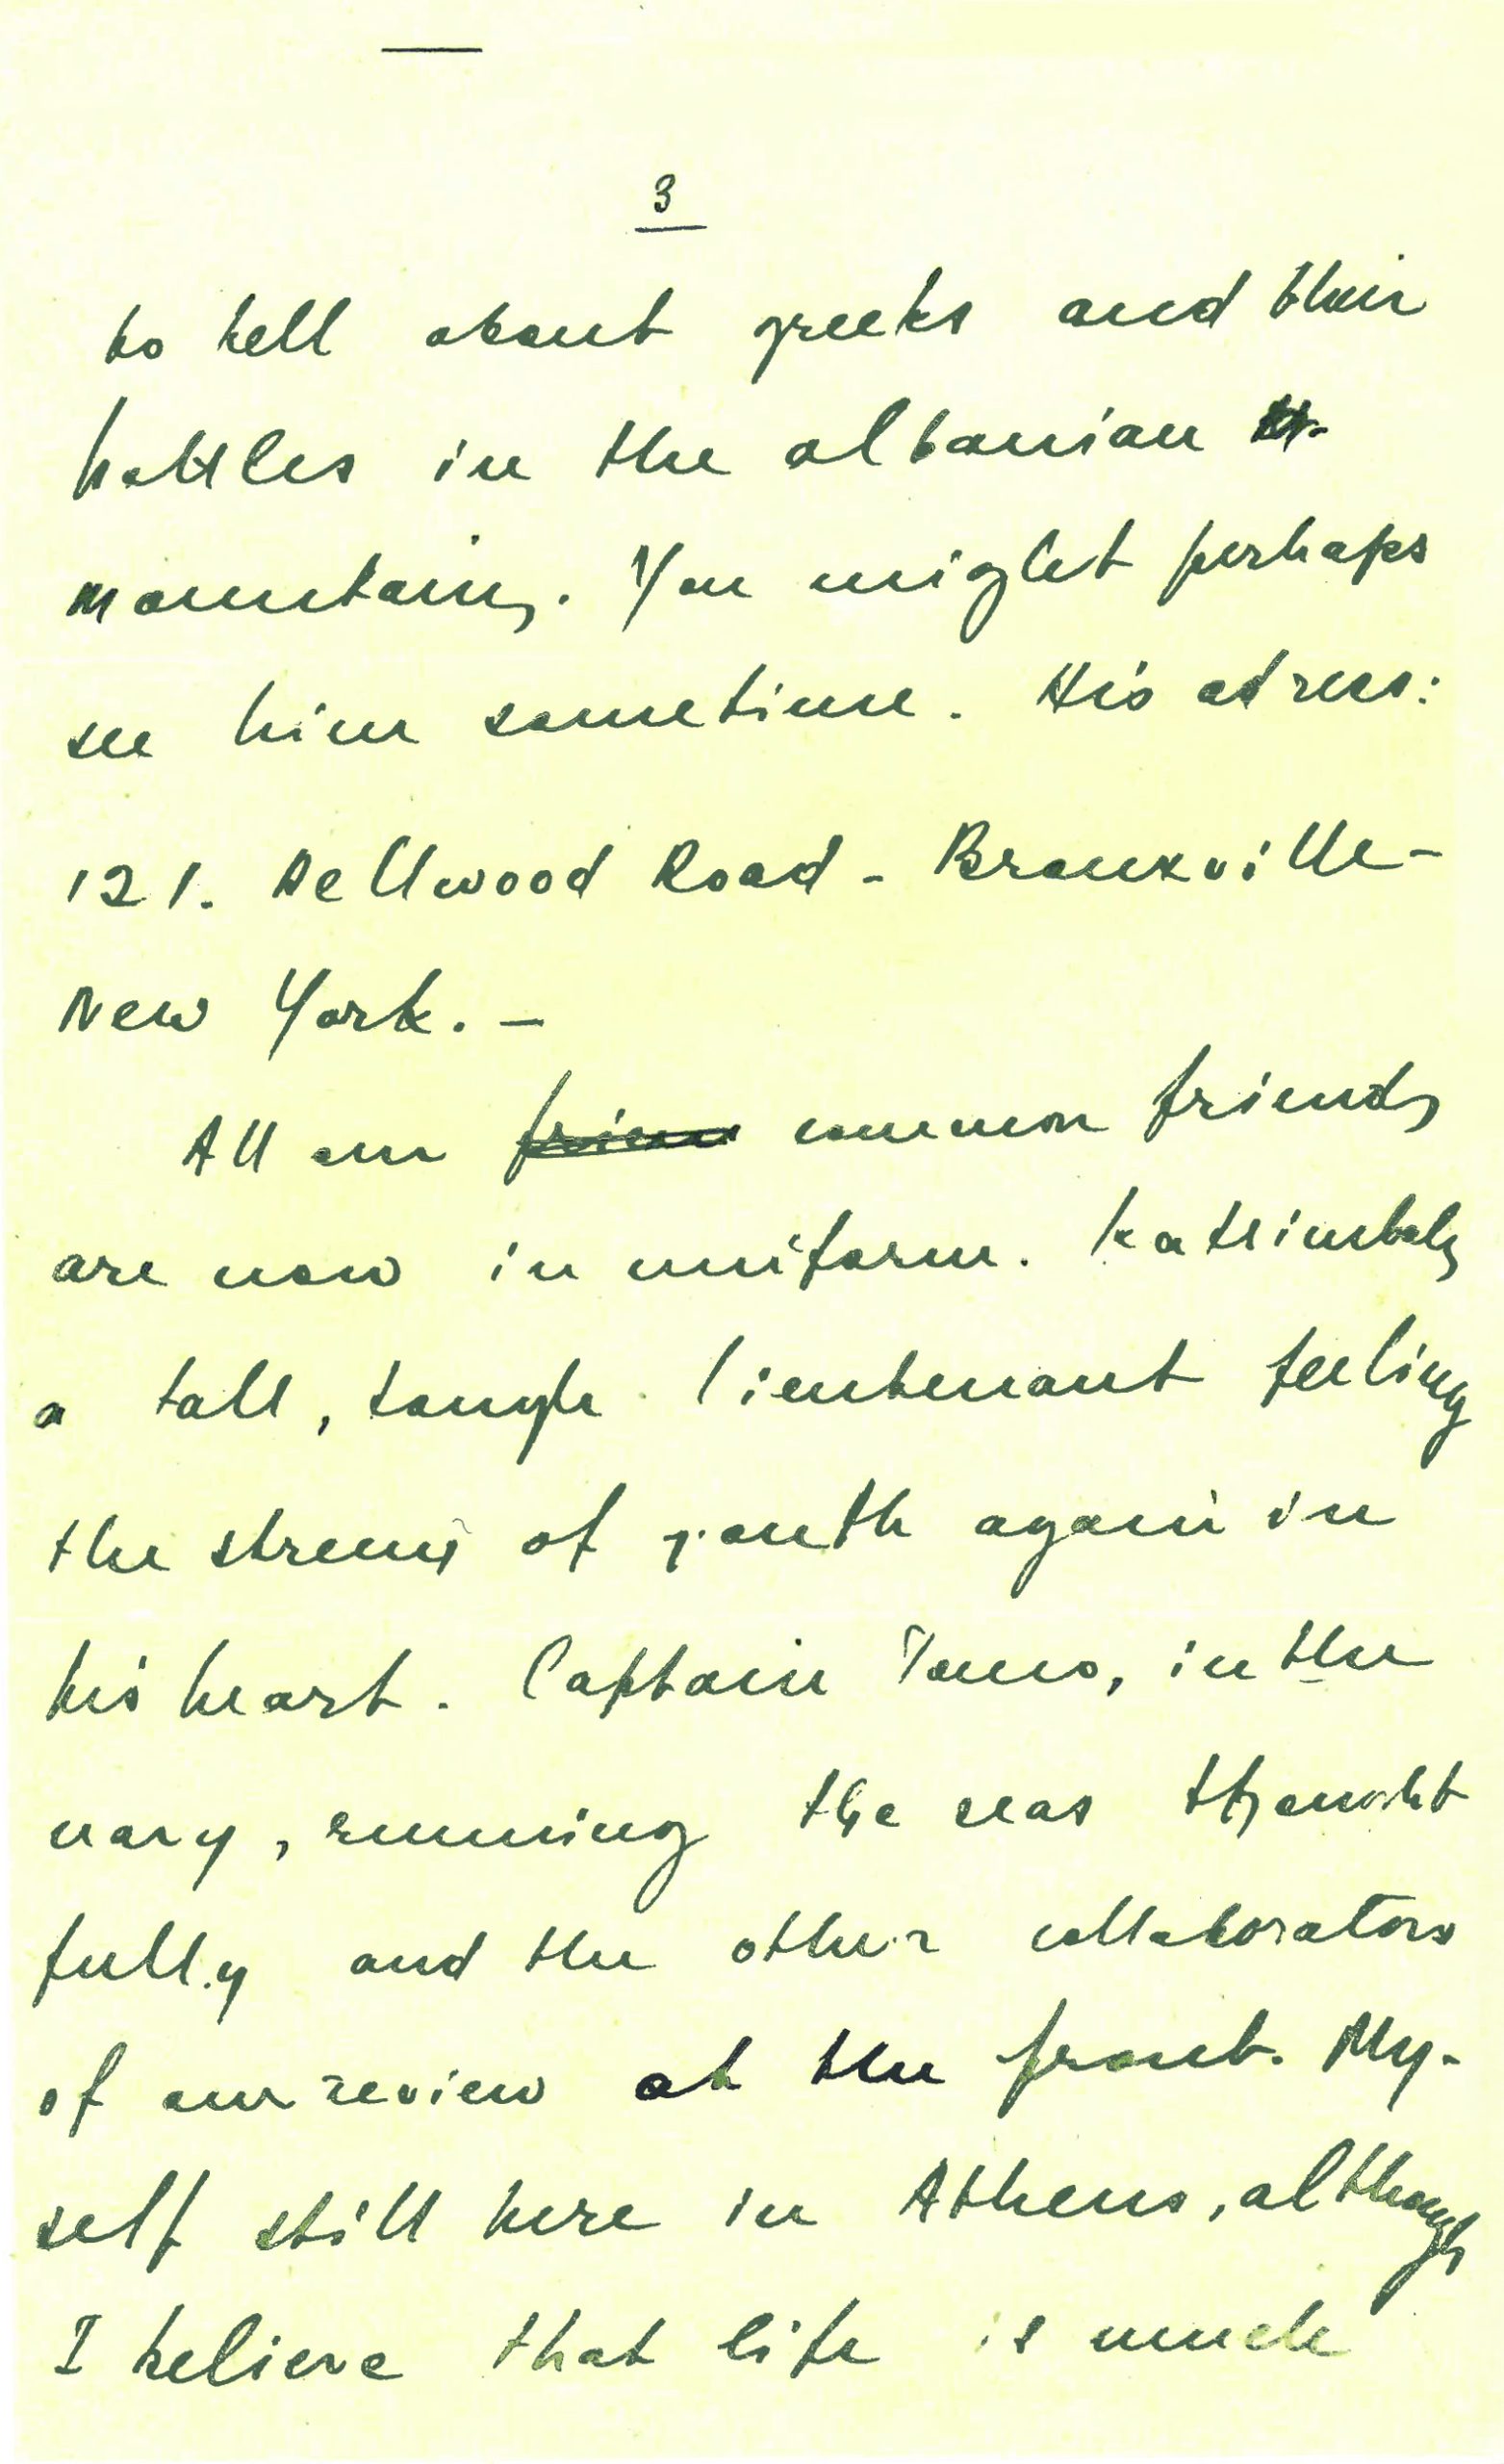 3
to tell about greeks and their
battles in the albanian
mountains. You might perhaps
see him sometime. His adress:
121. Dellwood Road - Bronxville -
New York. -
All our friend common friends
are now in uniform. Katsimbalis
a tall, tough lieutenant feeling
the of youth again in
his heart. Captain Tonio, in the
navy, running the seas thought
fully and the other collaborators
of our review at the front. My-
self still here in Athens, although
I believe that life is much